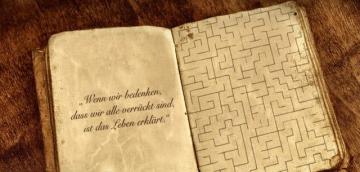 „Wenn wir bedenken,
dass wir alle verrückt sind,
ist das Leben erklärt.“